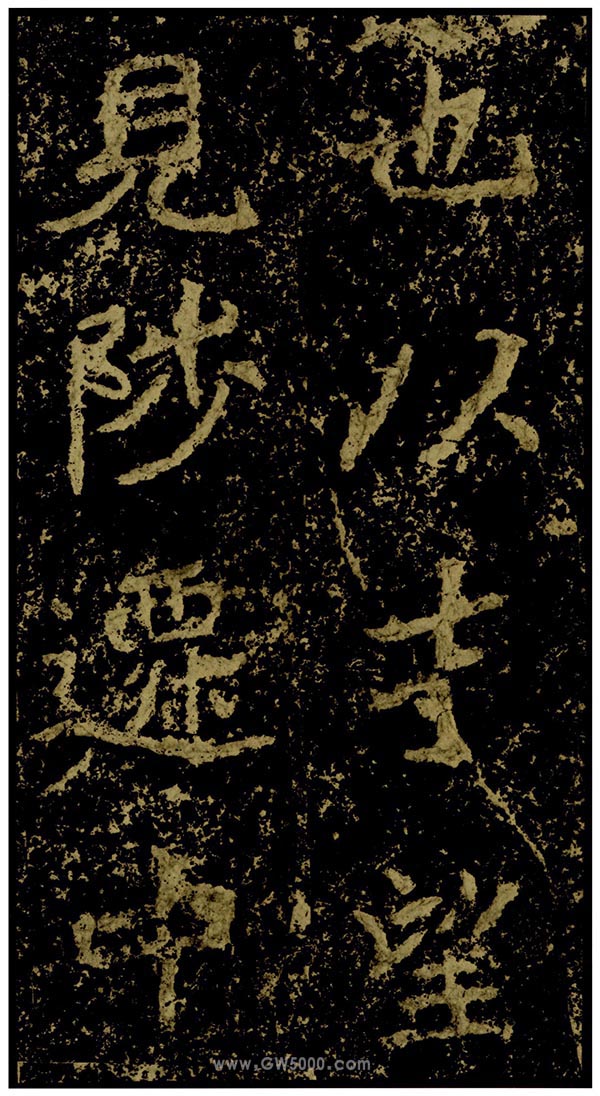 也以望
見陟遷中
www.GW5000.com